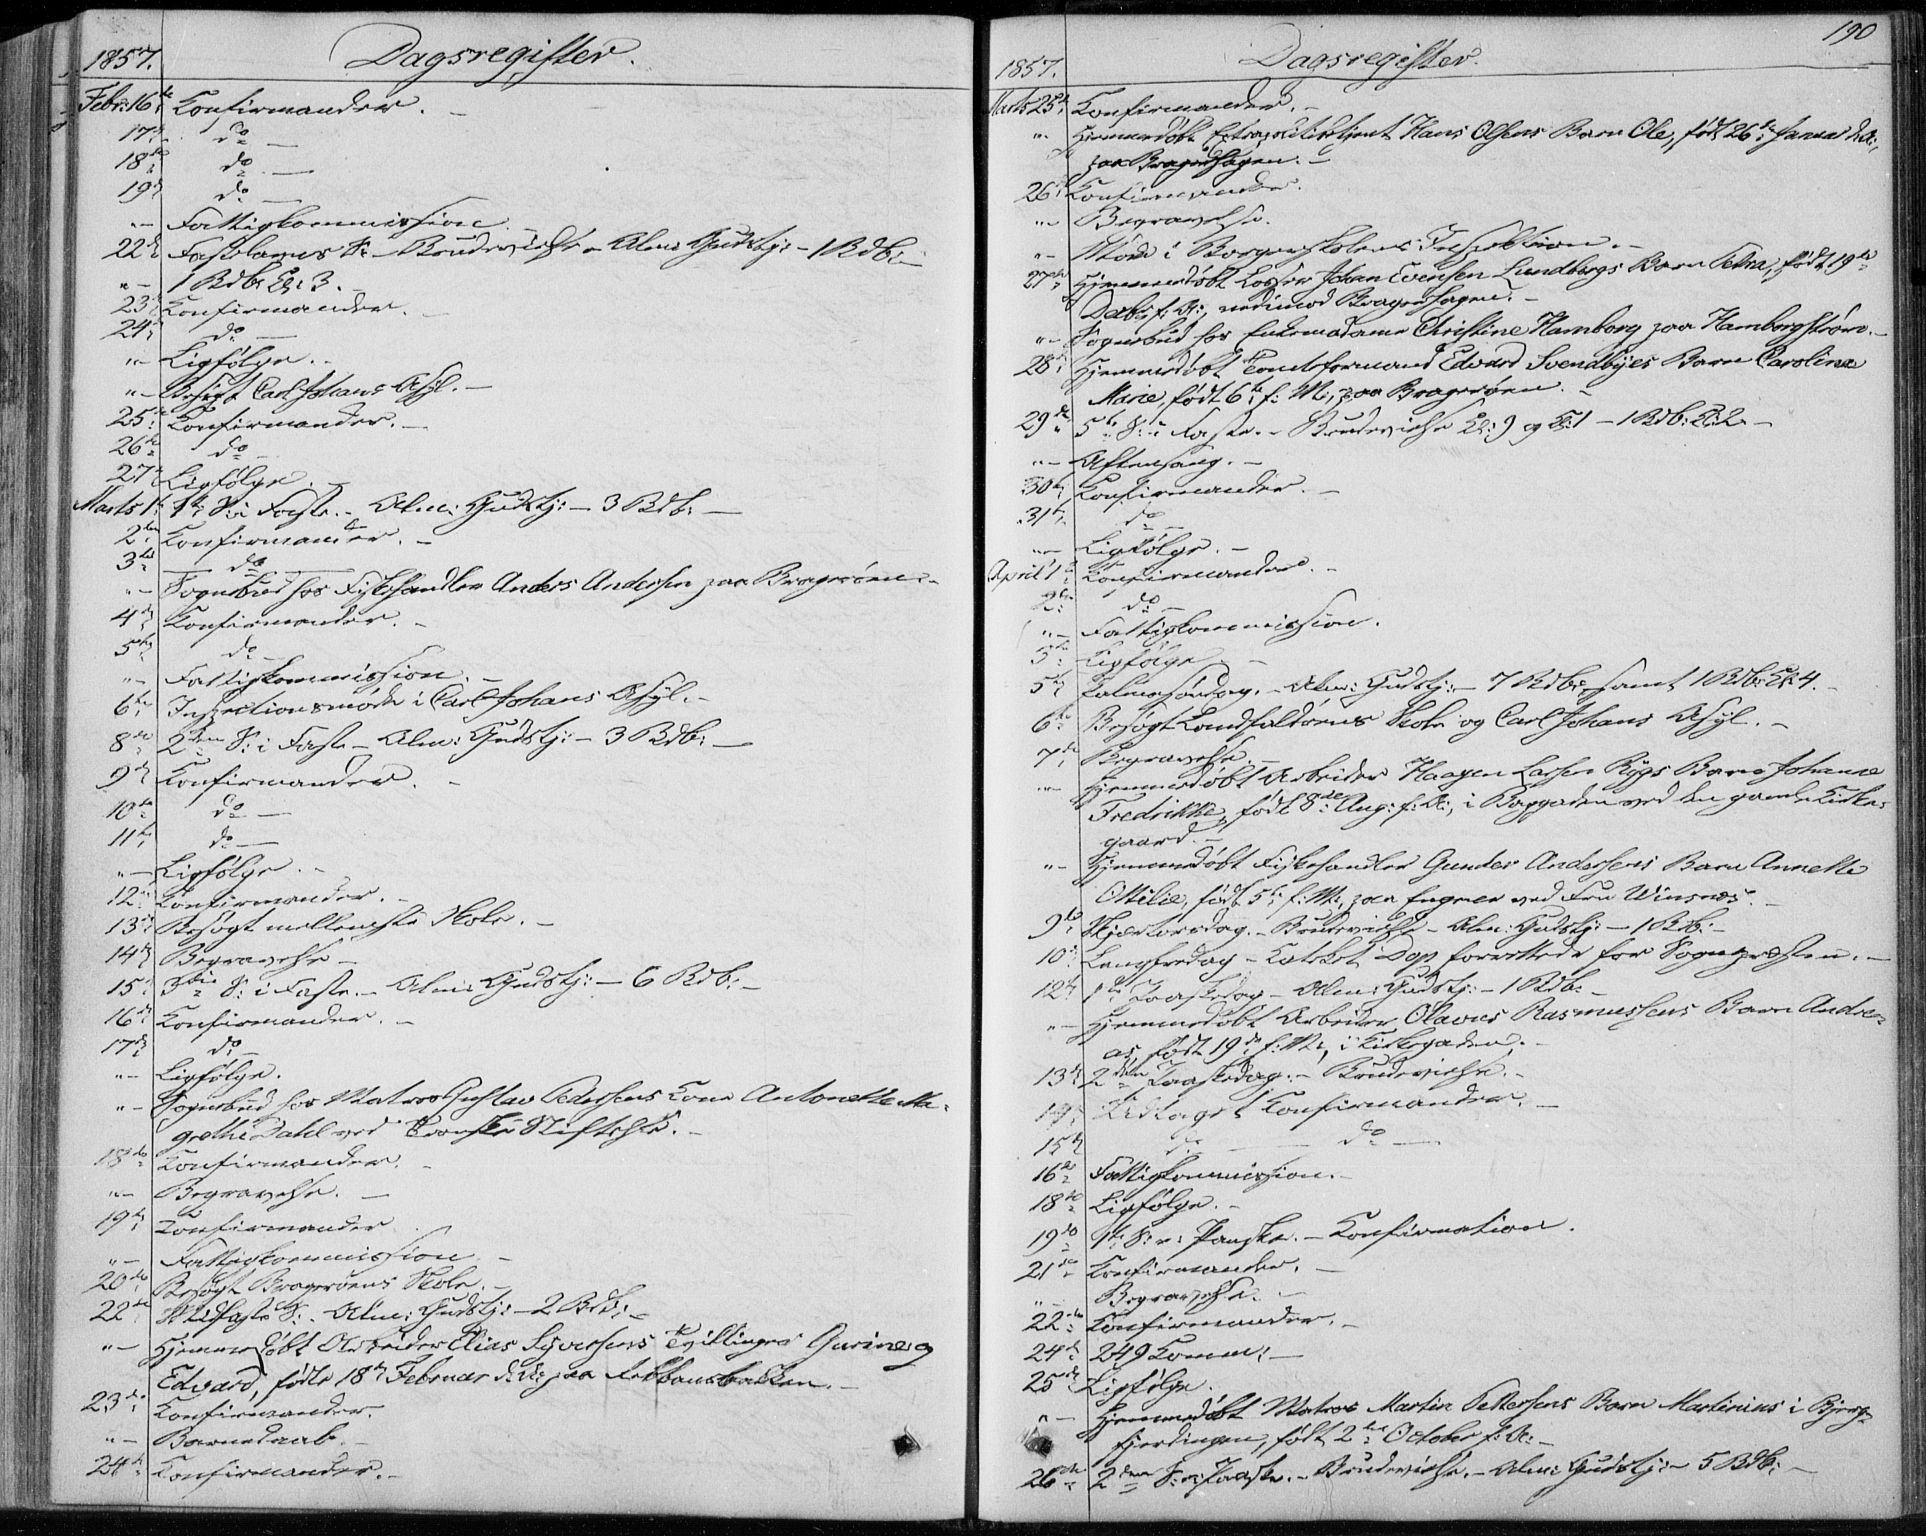 1857. Dagsregister.
Febr: 16de Konfirmander. –
17de do –
18de do –
19de do –
"– Fattigkommission. –
22de Fastelavns S: – Brudevielse – Alm: Gudstj: – 1 Bdb: –
"– 1 Bdb: 3. –
23de Konfirmander. –
24de do –
"– Ligfölge. –
"– Besögt Carl Johans Asyl. –
25de Konfirmander. –
26de do –
27de Ligfölge. –
Marts 1ste 1ste S: i Faste. – Alm: Gudstj: – 3 Bdb: –
2den Konfirmander. –
3die do –
"– Sognebud hos Fiskehandler Anders Andersen paa Bragerøen. –
4de Konfirmander. –
5te do –
"– Fattigkommission. –
6te Inspectionsmöde i Carl Johans Asyl. –
8de 2den S: i Faste – Alm: Gudstj: – 3 Bdb: –
9de Konfirmander. –
10de do –
11te do –
"– Ligfölge. –
12te Konfirmander. –
13de Besögt mellemste Skole. –
14de Begravelse –
15de 3die S: i Faste. – Alm: Gudstj: – 6 Bdb: –
16de Konfirmander. –
17de do –
"– Ligfölge.
"– Sognebud hos Matros Gustav Pedersens Kone Antonette Ma-
grethe Dahl ved Stiftelse. –
18de Konfirmander. –
"– Begravelse. –
19de Konfirmander
"– Fattigkommission –
20de Besögt Bragerøens Skole. –
22de Midfaste S: – Alm: Gudstj: – 2 Bdb: –
"– Hjemmedøbt Arbeider Elias Syversens Tvillinger Gurine og
Edvard, födte 18de Februar d: A: paa –
23de Konfirmander.
"– Barnedaab. –
24de Konfirmander. –
190
1857. Dagsregister.
Marts 25de Konfirmander. –
"– Hjemmedöbt Extrapolitibetjent Hans Olsens Barn Ole, födt 26de Januar d: A:,
paa Bragerhagen. –
26de Konfirmander.
"– Begravelse.
"– Möde i Borgerskolens Inspektion. –
27de Hjemmedöbt Johan Evensen Lundbergs Barn Petra, födt 19de
Decbr f: A:, nedimod Bragerhagen. –
"– Sognebud hos Enkemadame Christine Hamborg paa Hamborgstrøm. –
28de Hjemmedöbt Tomteformand Edvard Svendbyes Barn Caroline
Marie, födt 6te f: M:, paa Bragerøen. –
29de 5te S: i Faste. – Brudevielse 1 – 1 Bdb: 2 –
"– Aftensang. –
30te Konfirmander. –
31te do –
"– Ligfölge. –
April 1ste Konfirmander. –
2den do –
"– Fattigkommission.
3die Ligfölge –
5te Palmesöndag. – Alm: Gudstj: – 7 Bdb: samt 1 Bdb: 4. –
6te Besögt Landfaldøens Skole og Carl Johans Asyl. –
7de Begravelse. –
"– Hjemmedöbt Arbeider Haagen Larsen Rygs Barn Johanne
Fredrikke, födt 8de Aug: f: A:, i Baggaden ved den gamle Kirke-
gaard. –
"– Hjemmedöbt Fiskehandler Gunder Andersens Barn Annette
Ottilie, födt 5te f: M:, paa Engene ved Fru Winsnes. –
9de Skjærtorsdag. – Brudevielse – Alm: Gudstj: – 1 Bdb: –
10de Langfredag – Kateket Dop forrettede for Sognepræsten. –
12te 1ste Paaskedag – Alm: Gudstj: – 1 Bdb: –
"– Hjemmedöbt Arbeider Olavus Rasmussens Barn Andre-
as, födt 19de f: M:, i Kirkegaden. –
13de 2den Paaskedag. – Brudevielse. –
14de Konfirmander. –
15de do – do –
16de Fattigkommission. –
18de Ligfölge. –
19de 1ste S: e: Paaske. – Konfirmation.
21de Konfirmander. –
"– Begravelse. –
22de Konfirmander. –
24de 249 Komm: –
25de Ligfölge.
"– Hjemmedöbt Matros Martin Pettersens Barn Martinius i Bjerg-
fjerdingen, födt 2den October f: A: –
26de 2den S: e: Paaske. – Brudevielse. – Alm: Gudstj: – 5 Bdb: –